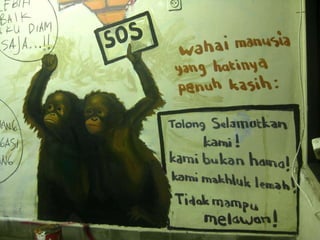 LEBIH
BAIK
AKU DIAM
SAJA...!!
SOS
Wahai manusia
yang hatinya
penuh kasih:
Tolong Selamatkan
kami!
kami bukan hama!
kami makhluk lemah!
Tidak mampu
melawan!